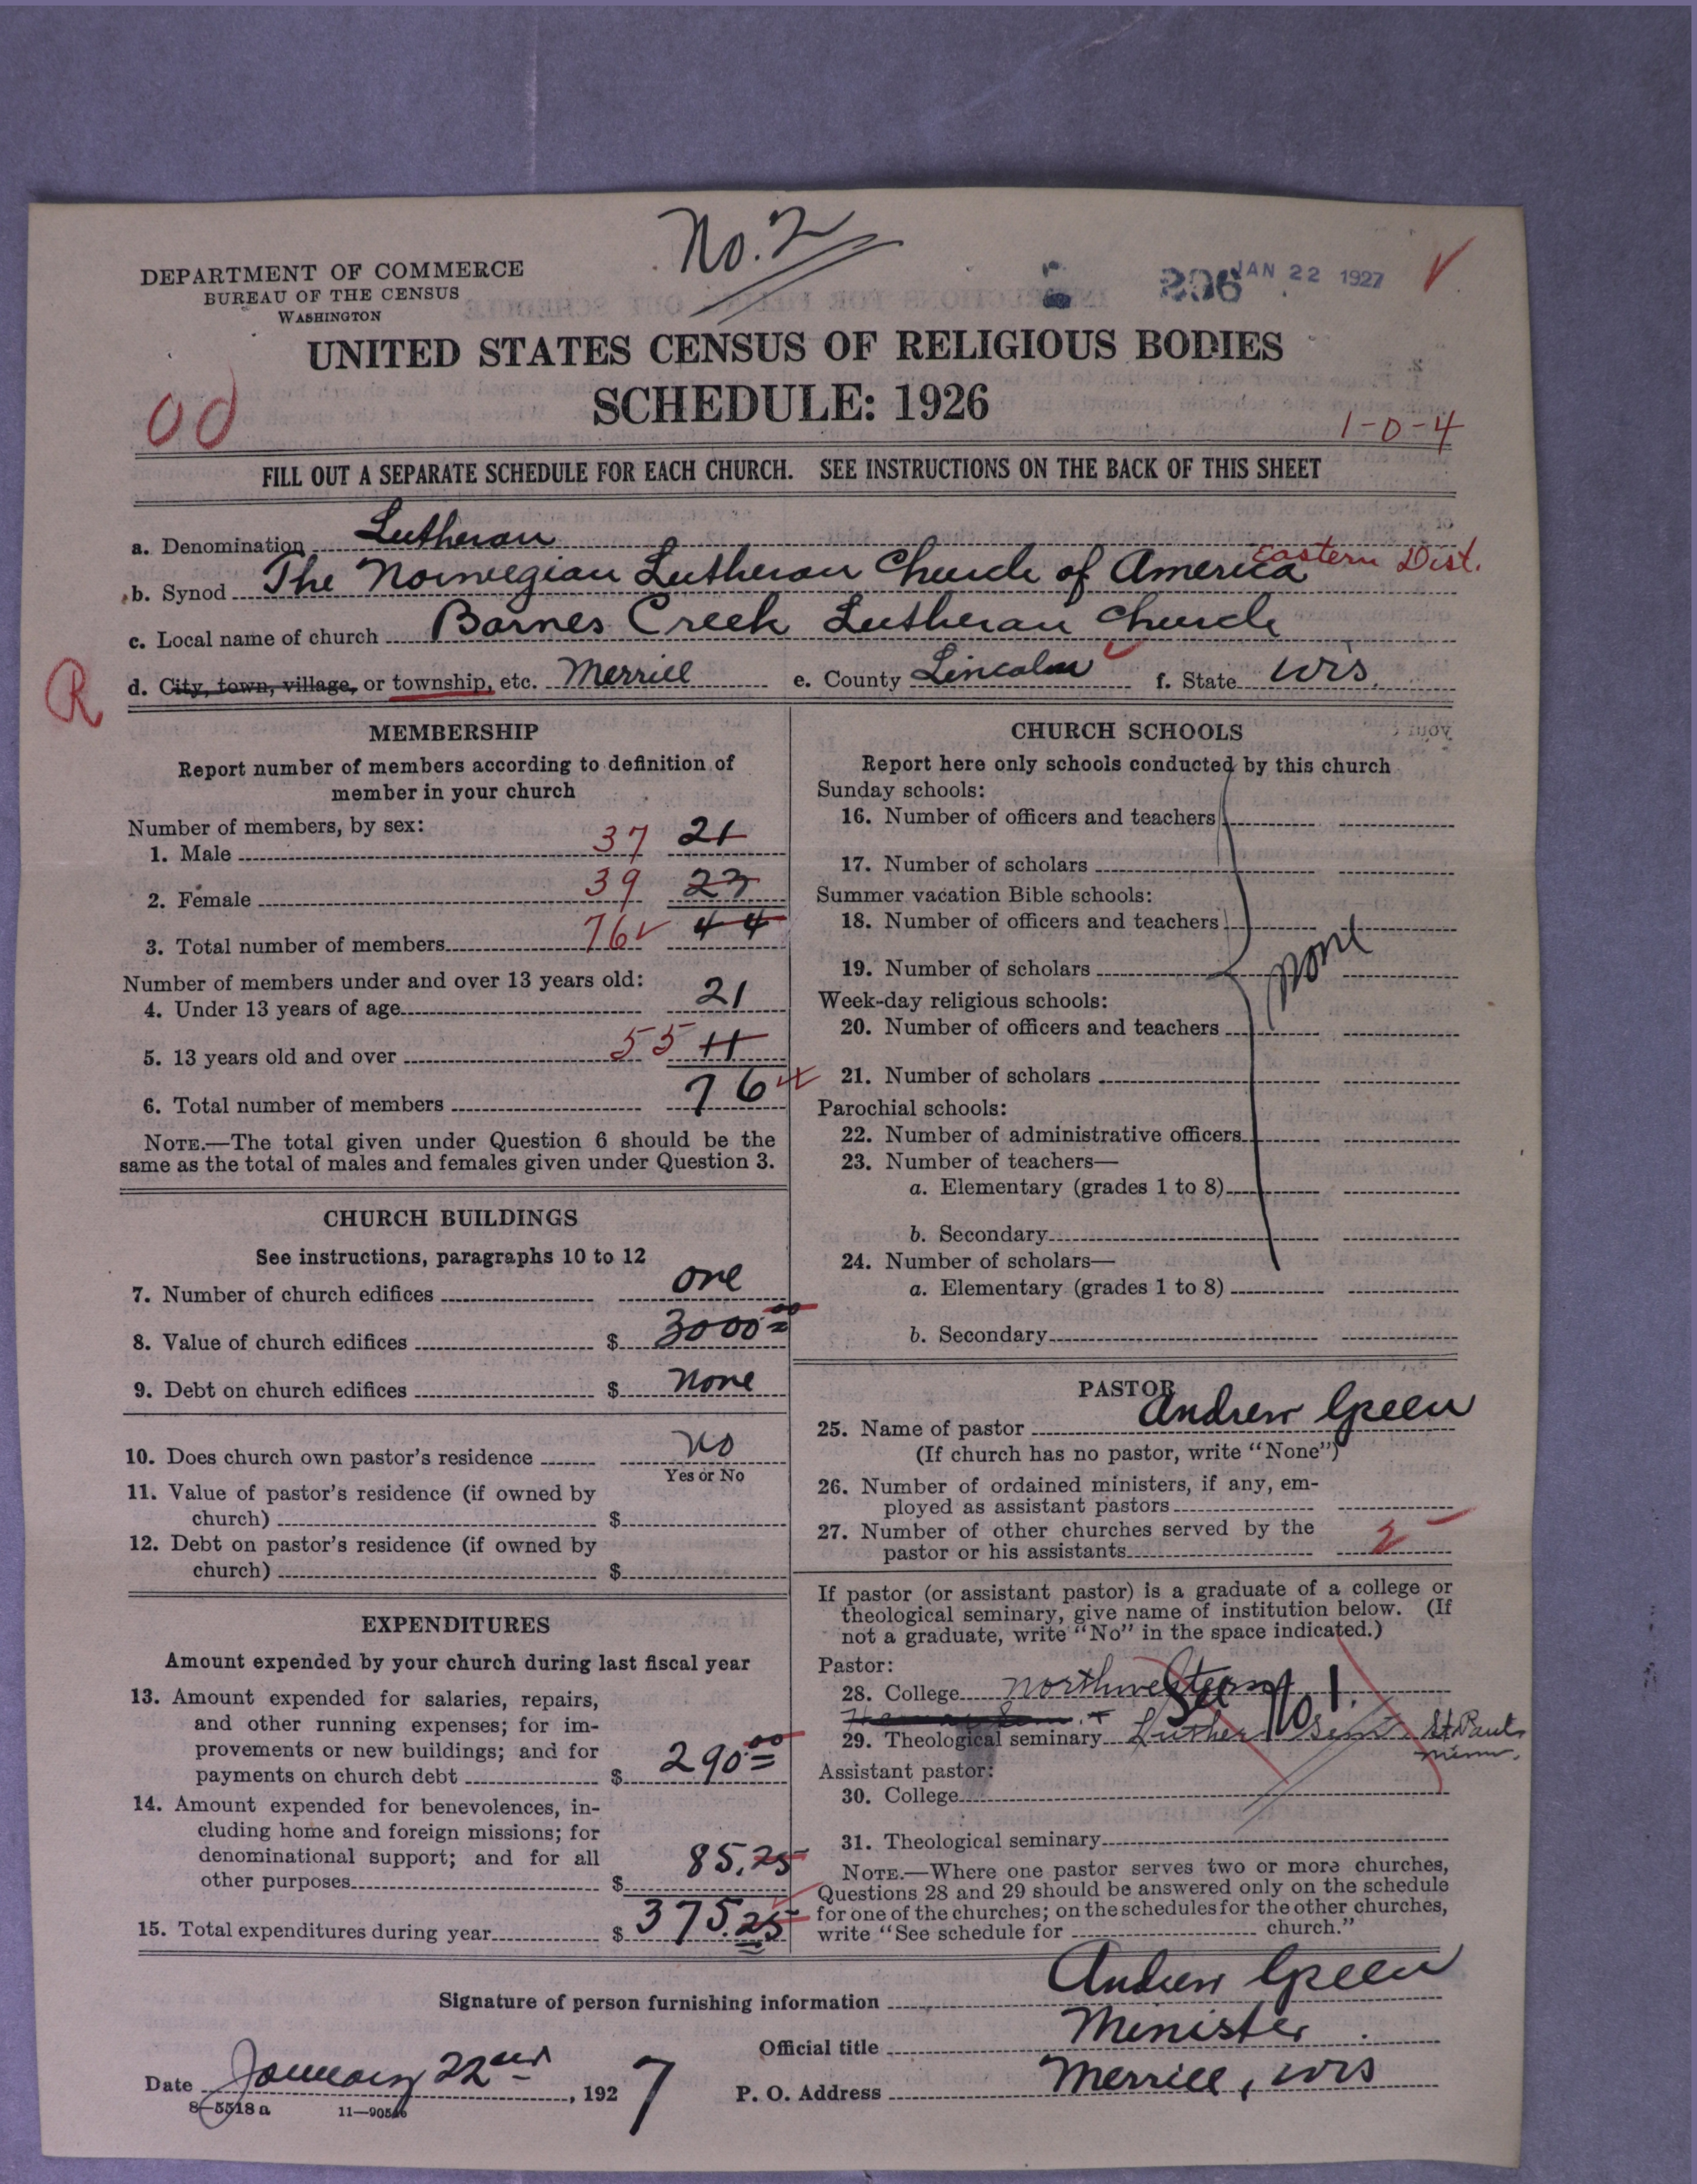 No. 2
DEPARTMENT OF COMMERCE
BUREAU OF THE CENSUS
WASHINGTON
206 JAN 22 1927
UNITED STATES CENSUS OF RELIGIOUS BODIES
SCHEDULE: 1926
00
1-0-4
FILL OUT A SEPARATE SCHEDULE FOR EACH CHURCH. SEE INSTRUCTIONS ON THE BACK OF THIS SHEET
a. Denomination Lutheran
b. Synod The Norwegian Lutheran Church of America Eastern Dist.
c. Local name of church Barnes Creek Lutheran Church
R
d. City, town, village, or township, etc. Merrill e. County Lincoln f. State Wis.
MEMBERSHIP
Report number of members according to definition of
member in your church
Number of members, by sex:
1. Male 37 21
2. Female 39 23
3. Total number of members 76 44
Number of members under and over 13 years old:
4. Under 13 years of age 21
5. 13 years old and over 55 44
6. Total number of members 76
NOTE.—The total given under Question 6 should be the
same as the total of males and females given under Question 3.
CHURCH BUILDINGS
See instructions, paragraphs 10 to 12
7. Number of church edifices one
8. Value of church edifices $ 3000 00
9. Debt on church edifices $ none
10. Does church own pastor's residence no
Yes or No
11. Value of pastor's residence (if owned by
church) $
12. Debt on pastor's residence (if owned by
church) $
EXPENDITURES
Amount expended by your church during last fiscal year
13. Amount expended for salaries, repairs,
and other running expenses; for im-
provements or new buildings; and for
payments on church debt $ 290 00
14. Amount expended for benevolences, in-
cluding home and foreign missions; for
denominational support; and for all
other purposes $ 85.25
15. Total expenditures during year $ 375.25
CHURCH SCHOOLS
Report here only schools conducted by this church
Sunday schools:
16. Number of officers and teachers
17. Number of scholars
Summer vacation Bible schools:
18. Number of officers and teachers
19. Number of scholars none
Week-day religious schools:
20. Number of officers and teachers
21. Number of scholars
Parochial schools:
22. Number of administrative officers
23. Number of teachers—
a. Elementary (grades 1 to 8)
b. Secondary
24. Number of scholars—
a. Elementary (grades 1 to 8)
b. Secondary
PASTOR
25. Name of pastor Andrew Green
(If church has no pastor, write "None")
26. Number of ordained ministers, if any, em-
ployed as assistant pastors
27. Number of other churches served by the
pastor or his assistants 2
If pastor (or assistant pastor) is a graduate of a college or
theological seminary, give name of institution below. (If
not a graduate, write "No" in the space indicated.)
Pastor:
28. College Northwestern
See No 1.
29. Theological seminary Luther Sem. St Paul
Minn.
Assistant pastor:
30. College
31. Theological seminary
NOTE.—Where one pastor serves two or more churches,
Questions 28 and 29 should be answered only on the schedule
for one of the churches; on the schedules for the other churches,
write "See schedule for church."
Signature of person furnishing information Andrew Green
Official title Minister
Date January 22nd, 1927 P. O. Address Merrill, Wis
8-5518 a 11-90546